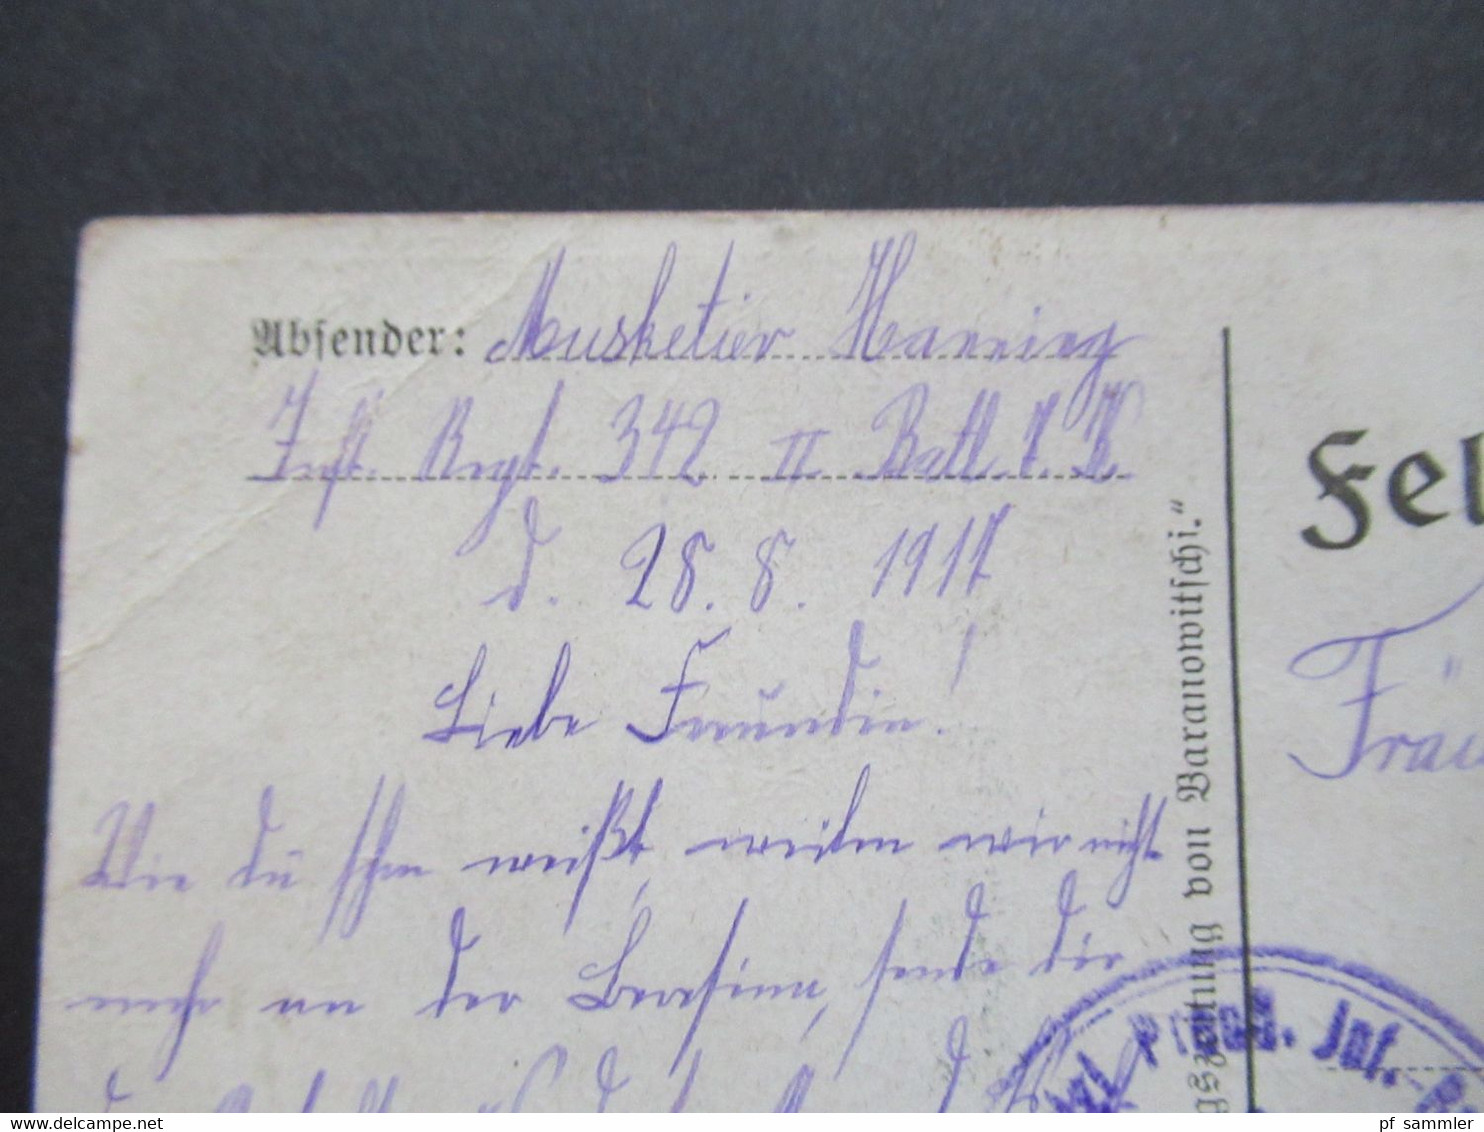 Absender: Musketier Hanning
Inft. Regt. 342 II Batl. 7. K
d. 28. 8. 1917
Liebe Freundin!
Wie du schon weißt, weilen wir nicht
mehr an der Beresina, sende dir
gszeitung von Baranowitschi."
Fel
Fräu
Kgl. Preuß. Inf.-R
pf_sammler